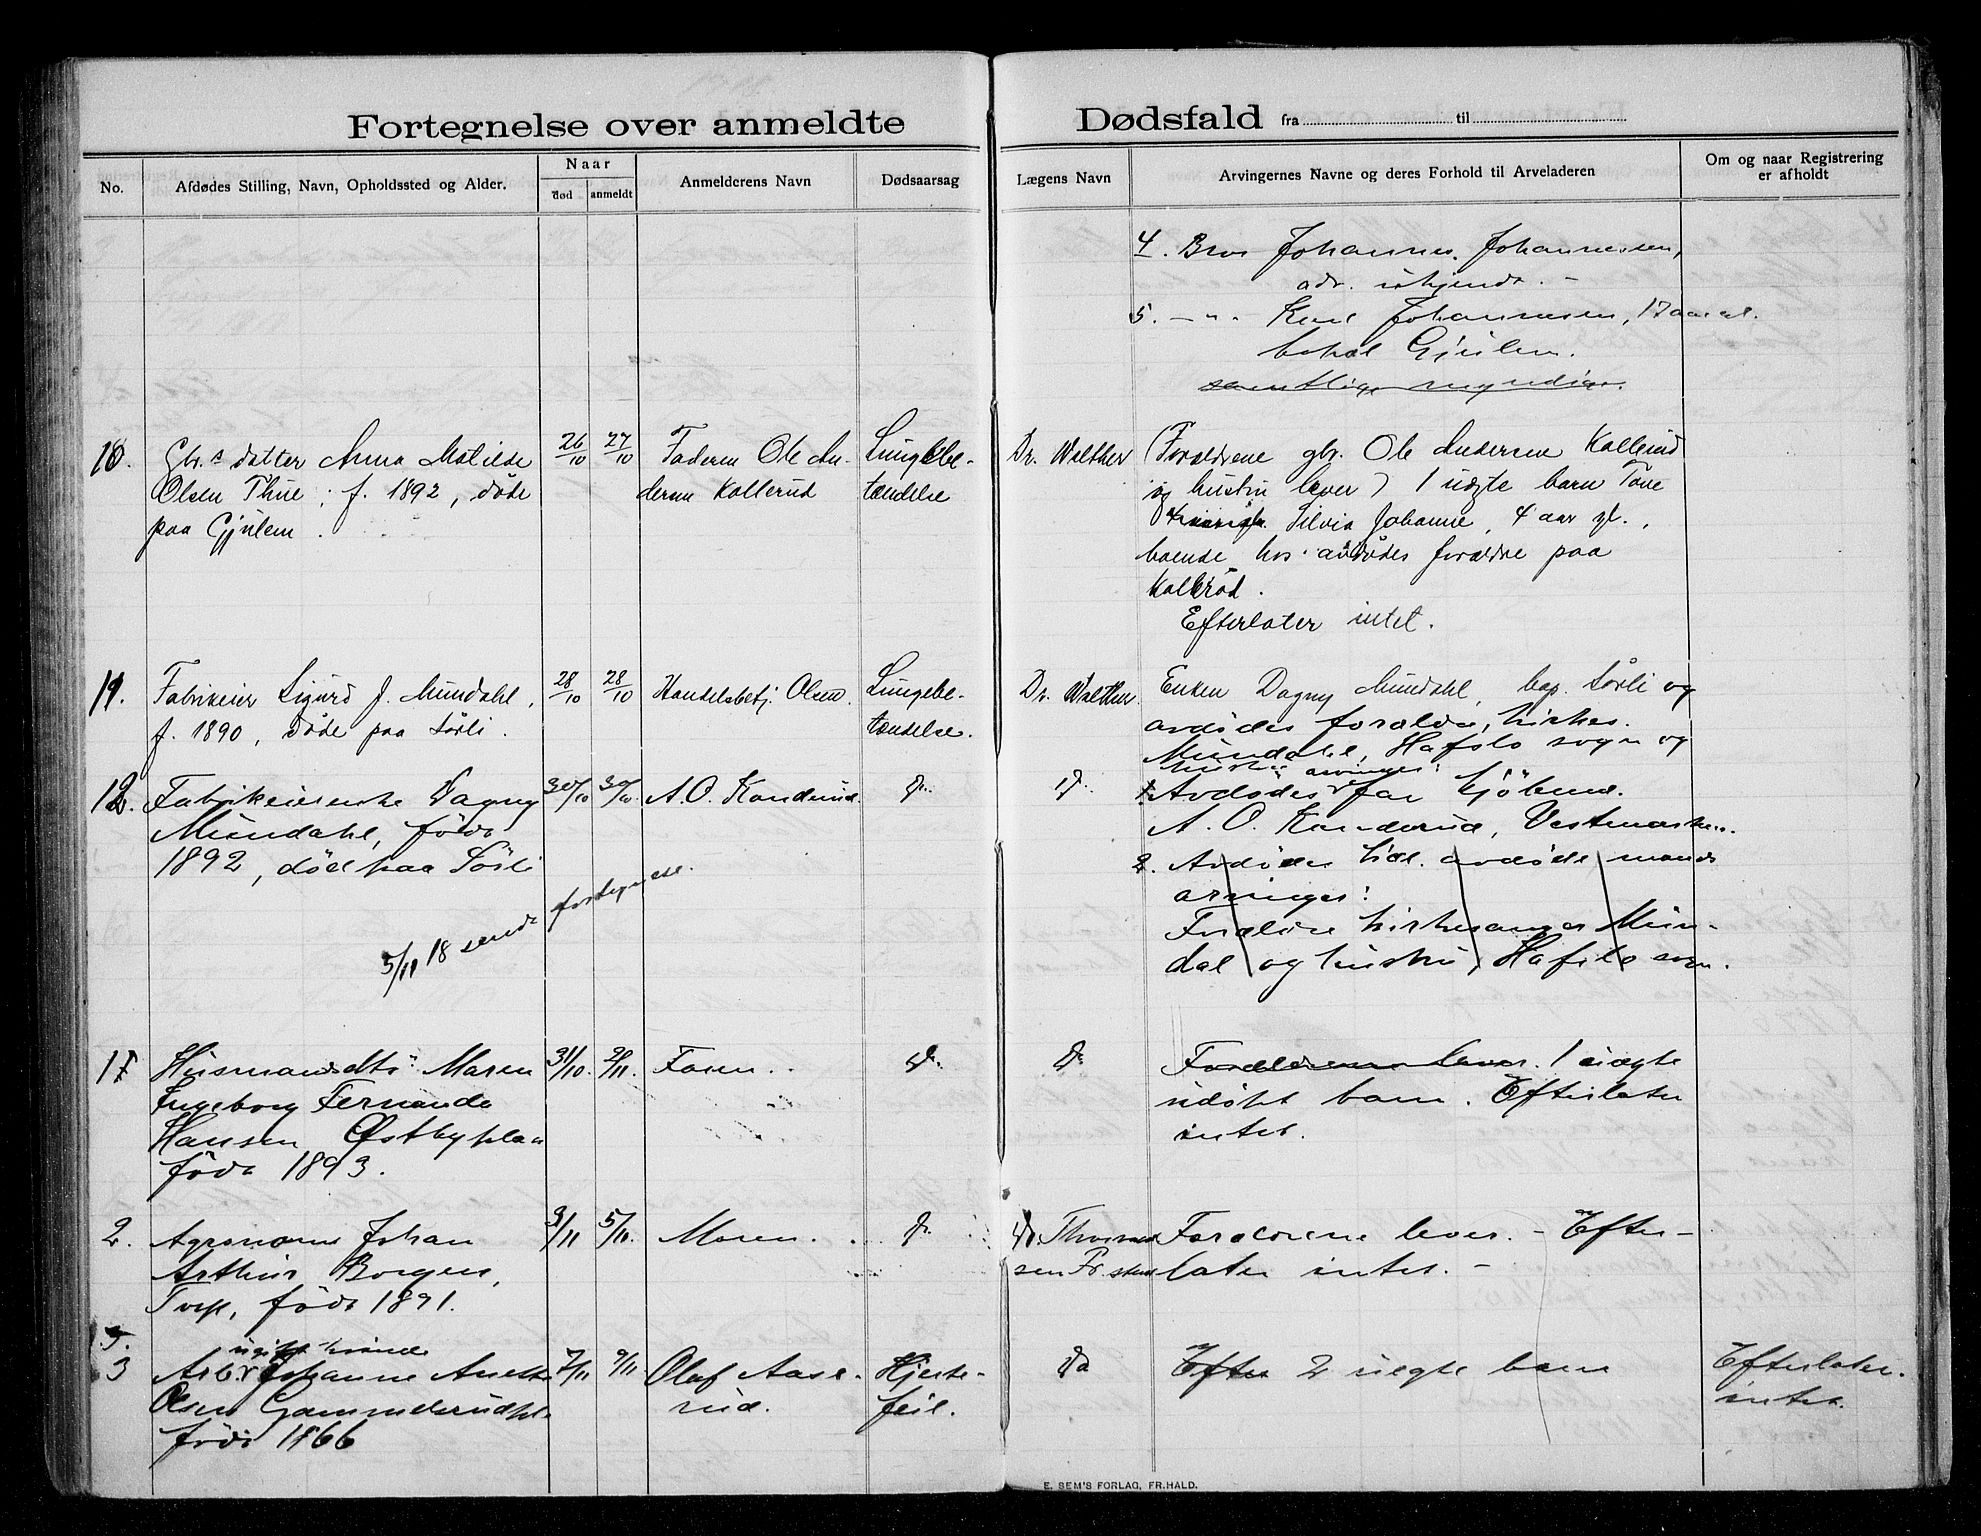 Fortegnelse over anmeldte Dødsfald fra til
No.
Afdødes Stilling, Navn, Opholdssted og Alder.
Naar
død
anmeldt
Anmelderens Navn
Dødsaarsag
Lægens Navn
Arvingernes Navne og deres Forhold til Arveladeren
Om og naar Registrering
er afholdt
4. Bror Johannes Johannessen,
adr. ukjendt. -
5. - " - Karl Johannesen, 17 aar gl.
bopæl Gjulem.
samtlige myndige.
10.
Gbr.s datter Anna Matilde
Olsen Thue, f. 1892, døde
paa Gjulem.
26/10
27/10
Faderen Ole An-
dersen Kollerud
Lungebe-
tændelse
Dr. Walther
(Forældrene gbr. Ole Andersen Kollerud
og hustru lever) 1 uægte barn Tove
Silvia Johanne, 4 aar gl.,
boende hos avdødes forældre paa
Kollerød.
Efterlater intet.
11.
Fabrikeier Sigurd J. Mundahl,
f. 1890, døde paa Sørli.
28/10
28/10
Handelsbetj. Olsen.
Lungebe-
tændelse.
Dr. Walther.
Enken Dagny Mundahl, bop. Sørli og
avdødes forældre, kirkes.
Mundahl, Hafslo sogn og
hustru arvinger:
12.
Fabrikeierenke Dagny
Mundahl, født
1892, død paa Sørli
30/10
30/10.
A. O. Kanderud.
Do.
Do.
1. Avdødes far kjøbmd.
A. O. Kanderud, Vestmarken.
2. Avdødes tidl. avdøde mands
arvinger:
Forældre kirkesanger Mun-
dal og hustru, Hafslo sogn.
5/11 18 sendt fortegnelse.
1
Husmandsdtr. Maren
Ingeborg Fernanda
Hansen Østbypla
født 1893.
31/10.
2/11.
Faren.
Do.
Do
Forældrene lever. 1 uægte
udøpt barn. Efterlater
intet.
2.
Agronom Johan
Arthur Borgen,
Torp, født 1891.
3/11
5/11.
Moren.
Do.
Do. Thomas
sen Fr.stad
Forældrene lever. - Efter-
later intet. -
3
ugift kvinde
Arb. Johanne Anette
Olsen Gammelsrudpl.
født 1866
7/11
9/11.
Olaf Aase-
rud.
Hjerte-
feil.
Do
Efter 2 uegte barn
Efterlater
intet.
E. SEM'S FORLAG, FR.HALD.